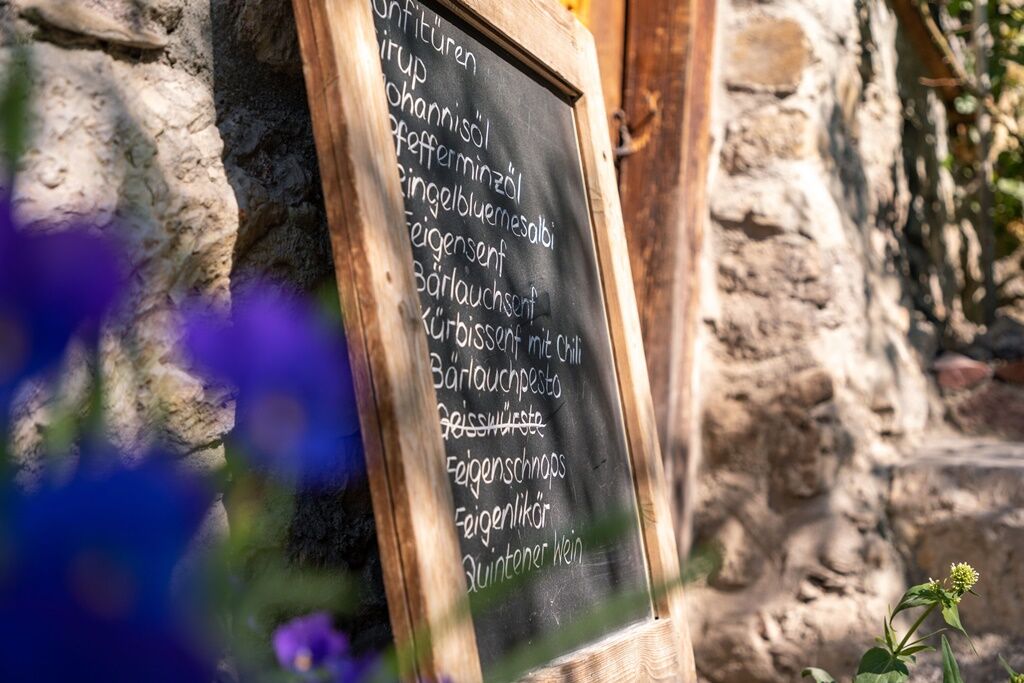 onfitüren
irup
ohannisöl
feffermin­zöl
ingelbluemesalbi
Feigensenf
Bärlauchsenf
Kürbissenf mit Chili
Bärlauchpesto
Geisswürste
Feigenschnaps
Feigenlikör
Quintener Wein